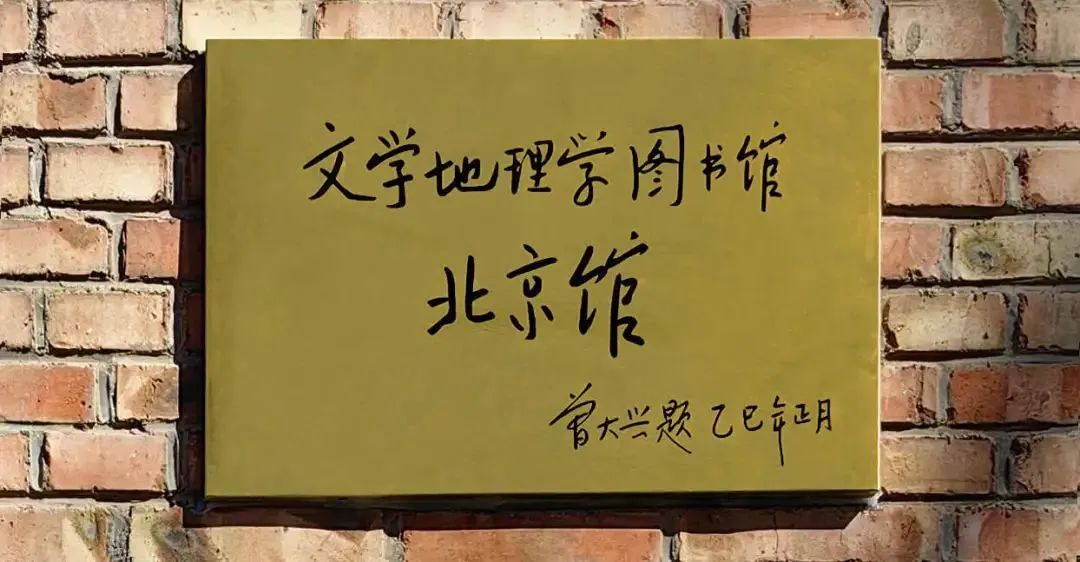 文学地理学图书馆
北京馆
曾大兴题 乙巳年正月